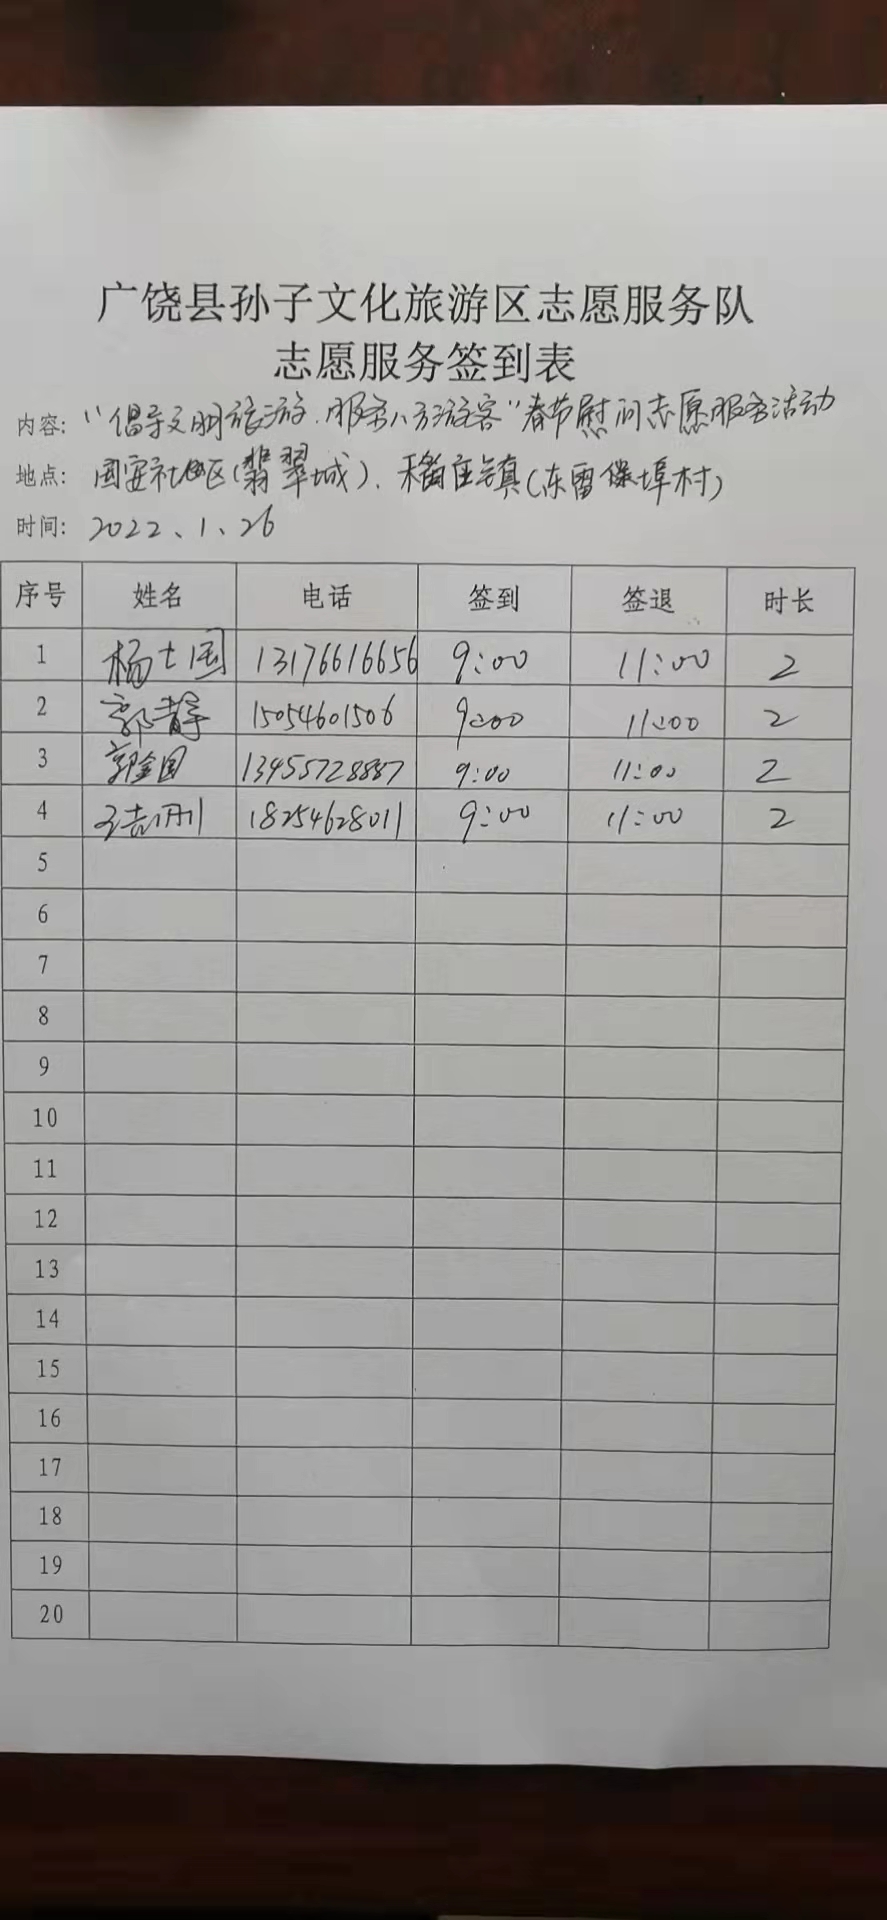 广饶县孙子文化旅游区志愿服务队
志愿服务签到表
内容: "倡导文明旅游.服务八方游客"春节慰问志愿服务活动
地点: 国安社区(翡翠城)、稻庄镇(东雷埠村)
时间: 2022、1、26
序号 姓名 电话 签到 签退 时长
1 杨士国 13176616656 9:00 11:00 2
2 郭静 15054601506 9:00 11:00 2
3 郭金国 13455728887 9:00 11:00 2
4 18254628011 9:00 11:00 2
5
6
7
8
9
10
11
12
13
14
15
16
17
18
19
20